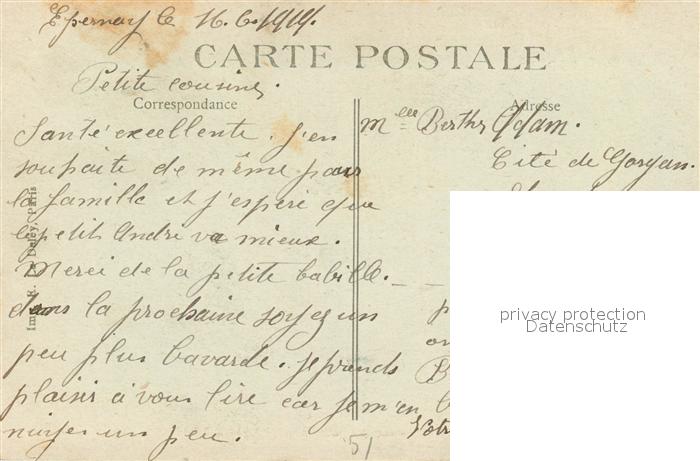 Epernay le 16.6.1914.
CARTE POSTALE
Petite cousine,
Correspondance
Adresse
Santé excellente. J'en
souhaite de même pour
la famille et j'espère que
le petit André va mieux.
Merci de la petite babille.
dans la prochaine soyez un
peu plus bavarde. je prends
plaisir à vous lire car je m'en
nuyes un peu.
Mlle Berthe Adam.
Cité de
privacy protection
Datenschutz
51